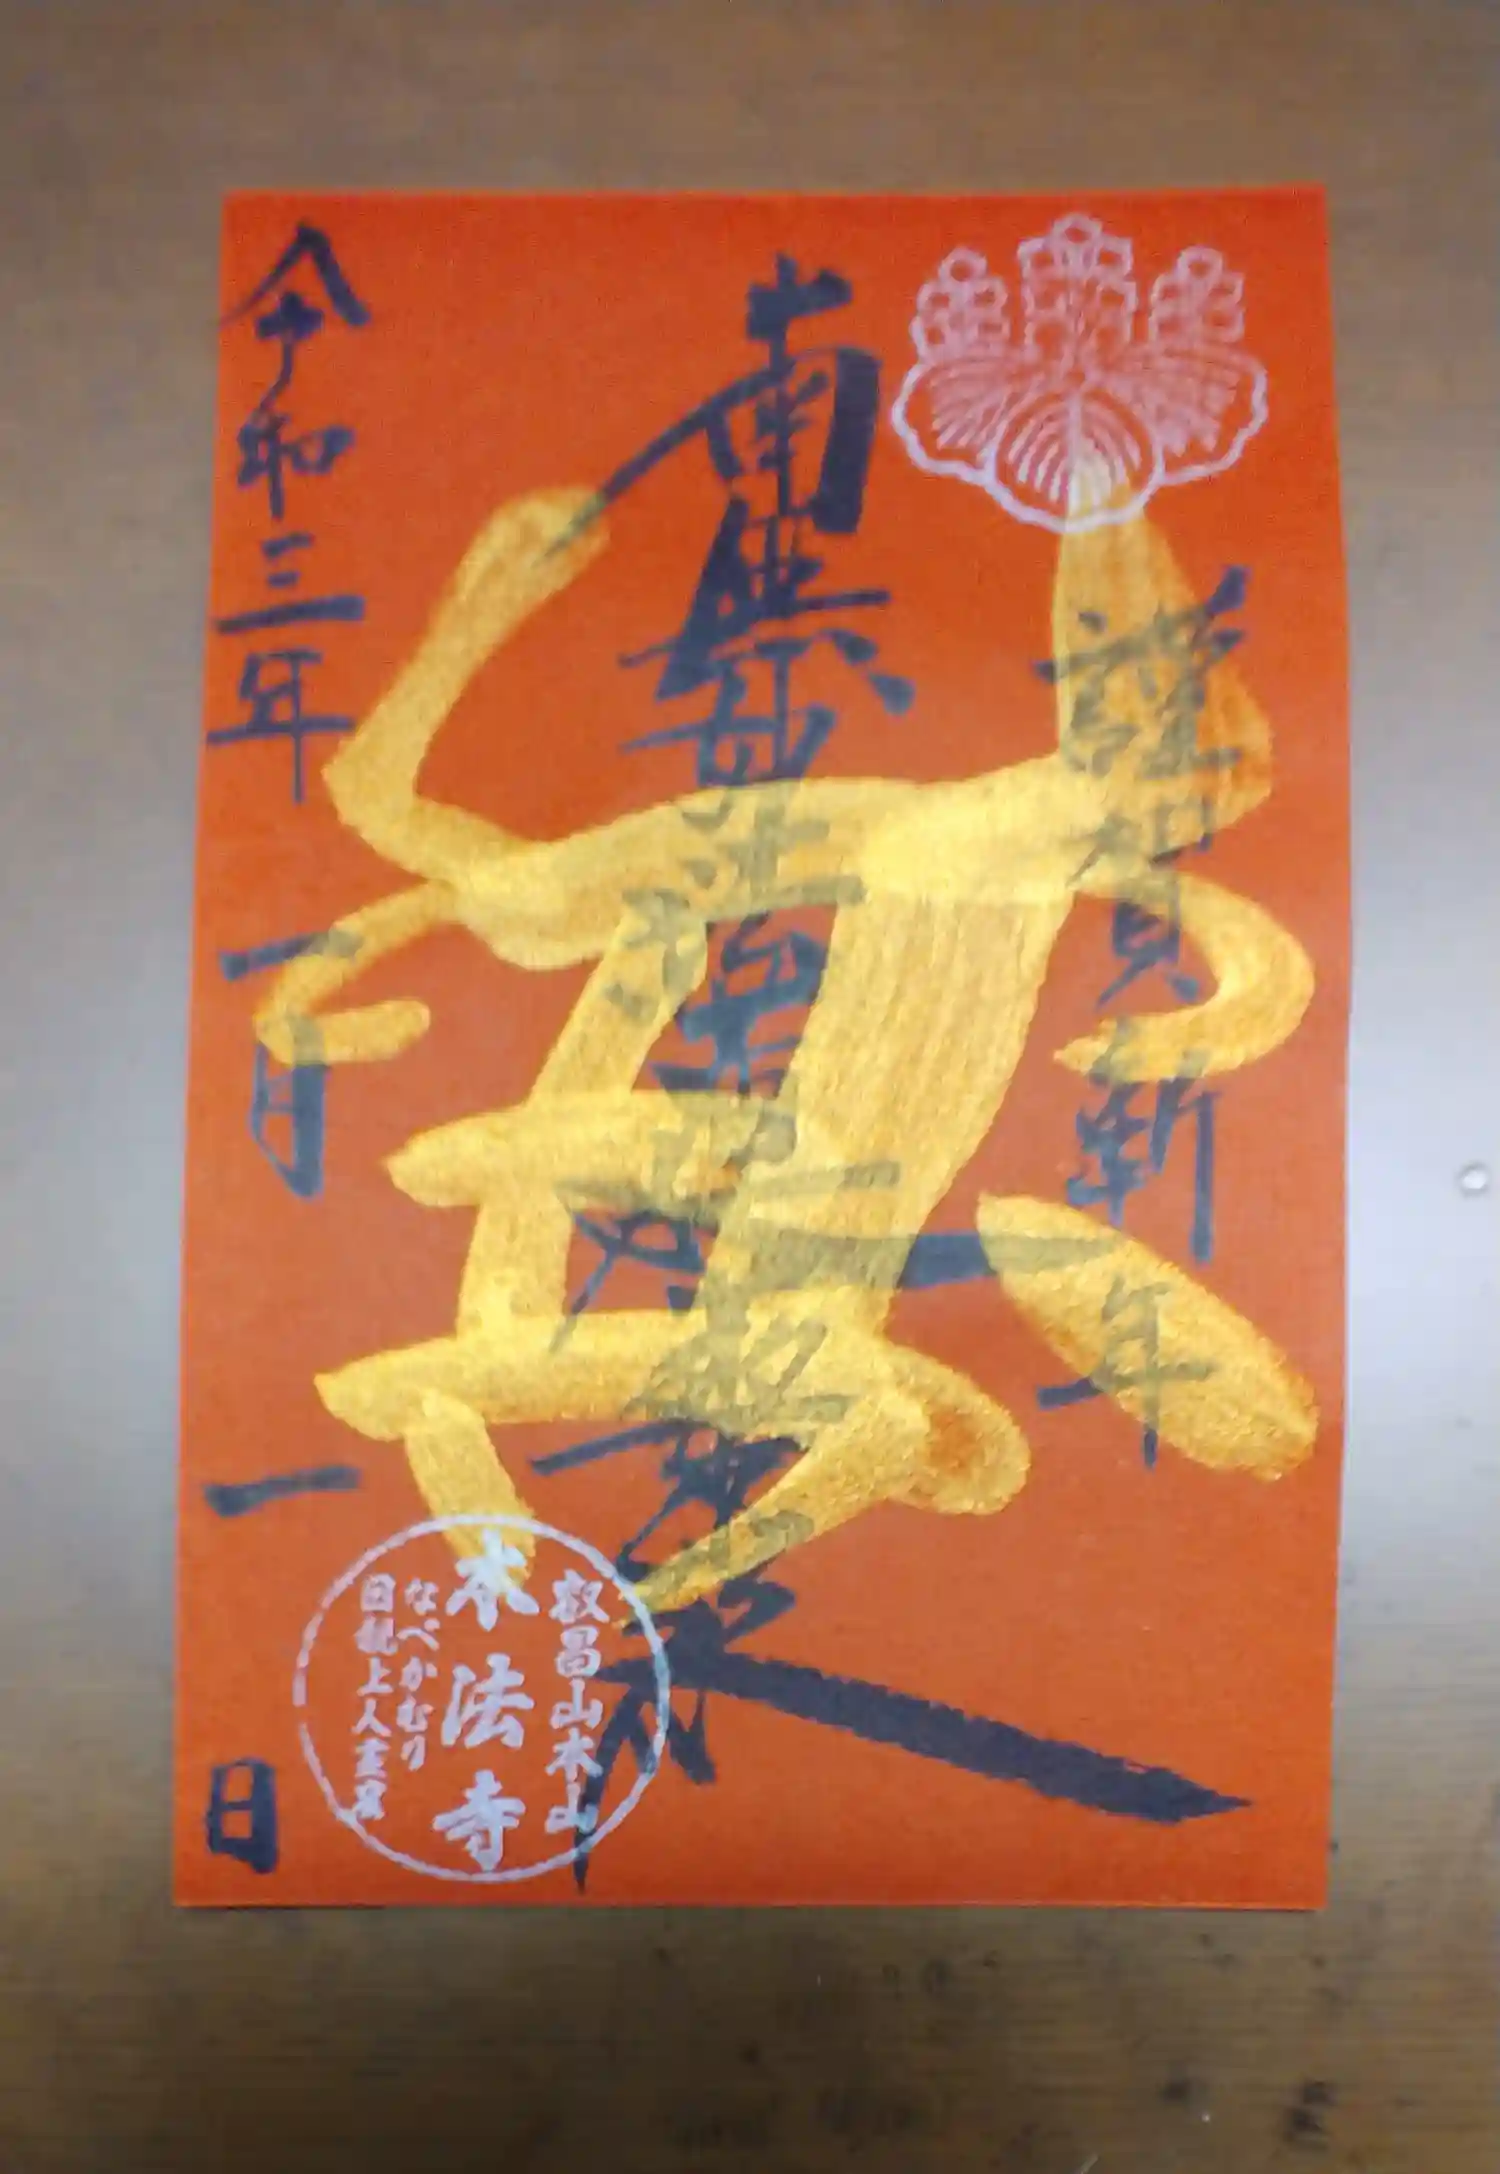 謹賀新年
南無妙法蓮華経
令和三年一月一日
叡昌山本山
本法寺
なべかむり
日親上人